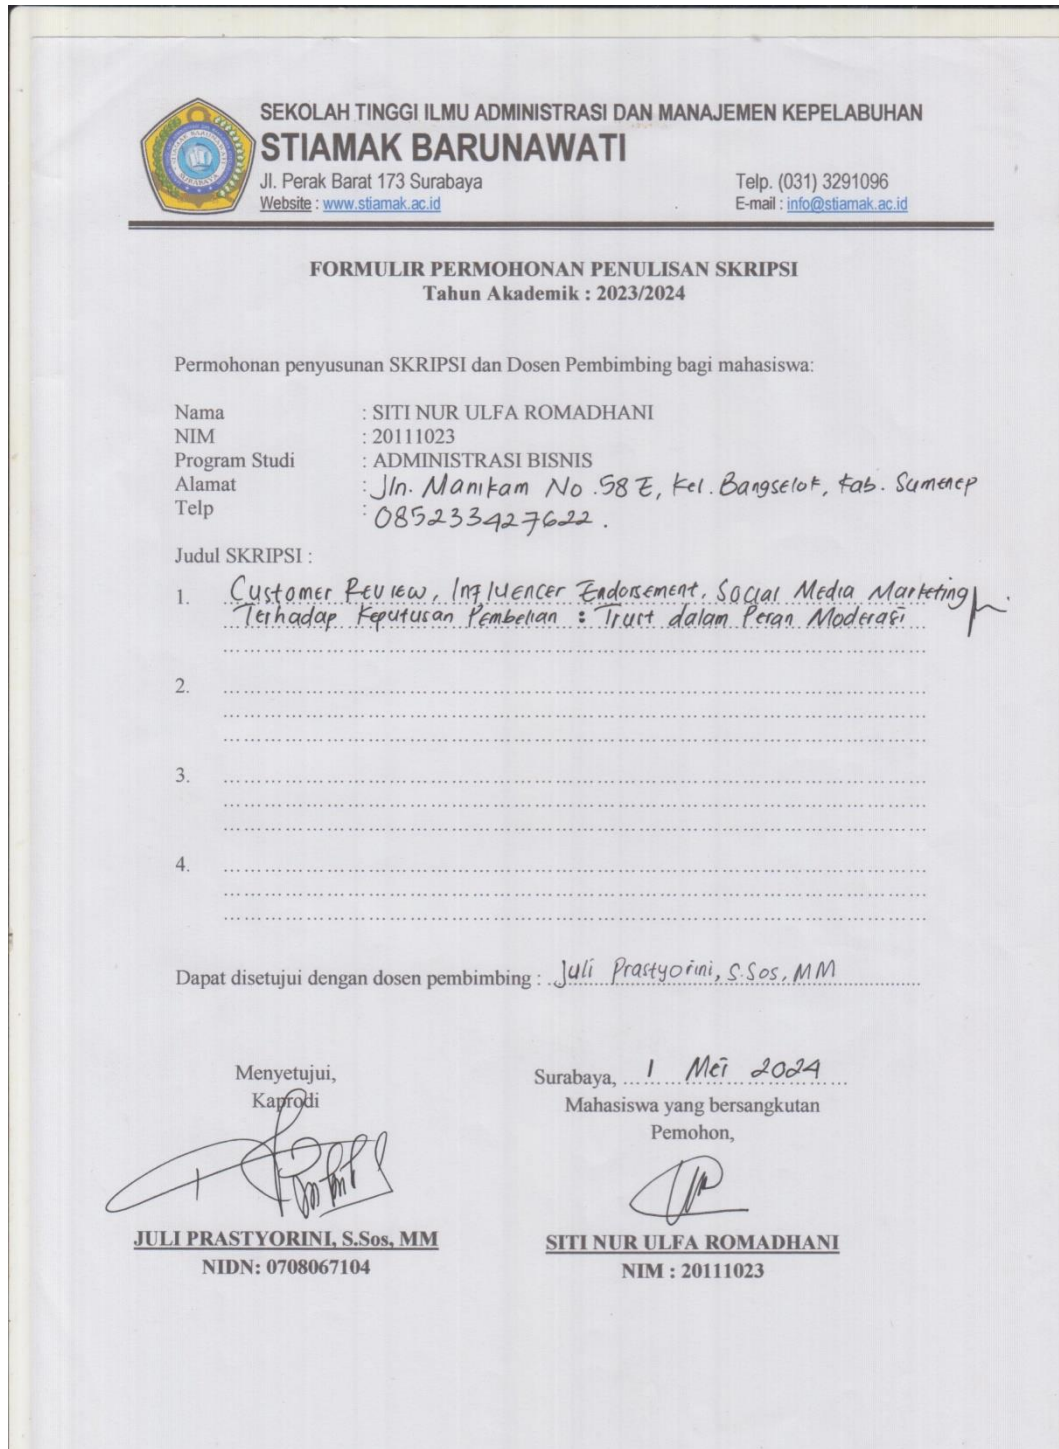 SEKOLAH TINGGI ILMU ADMINISTRASI DAN MANAJEMEN KEPELABUHAN
STIAMAK BARUNAWATI
Jl. Perak Barat 173 Surabaya
Telp. (031) 3291096
Website : www.stiamak.ac.id
E-mail : info@stiamak.ac.id
FORMULIR PERMOHONAN PENULISAN SKRIPSI
Tahun Akademik : 2023/2024
Permohonan penyusunan SKRIPSI dan Dosen Pembimbing bagi mahasiswa:
Nama : SITI NUR ULFA ROMADHANI
NIM : 20111023
Program Studi : ADMINISTRASI BISNIS
Alamat : Jln. Manikam No.58E, Kel. Bangselok, Kab. Sumenep
Telp : 085233427622.
Judul SKRIPSI :
1. Customer Review, Influencer Endorsement, Social Media Marketing
Terhadap Keputusan Pembelian : Trust dalam Peran Moderasi
2.
3.
4.
Dapat disetujui dengan dosen pembimbing : Juli Prastyorini, S.Sos, MM
Menyetujui,
Kaprodi
Surabaya, 1 Mei 2024
Mahasiswa yang bersangkutan
Pemohon,
JULI PRASTYORINI, S.Sos, MM
NIDN: 0708067104
SITI NUR ULFA ROMADHANI
NIM : 20111023